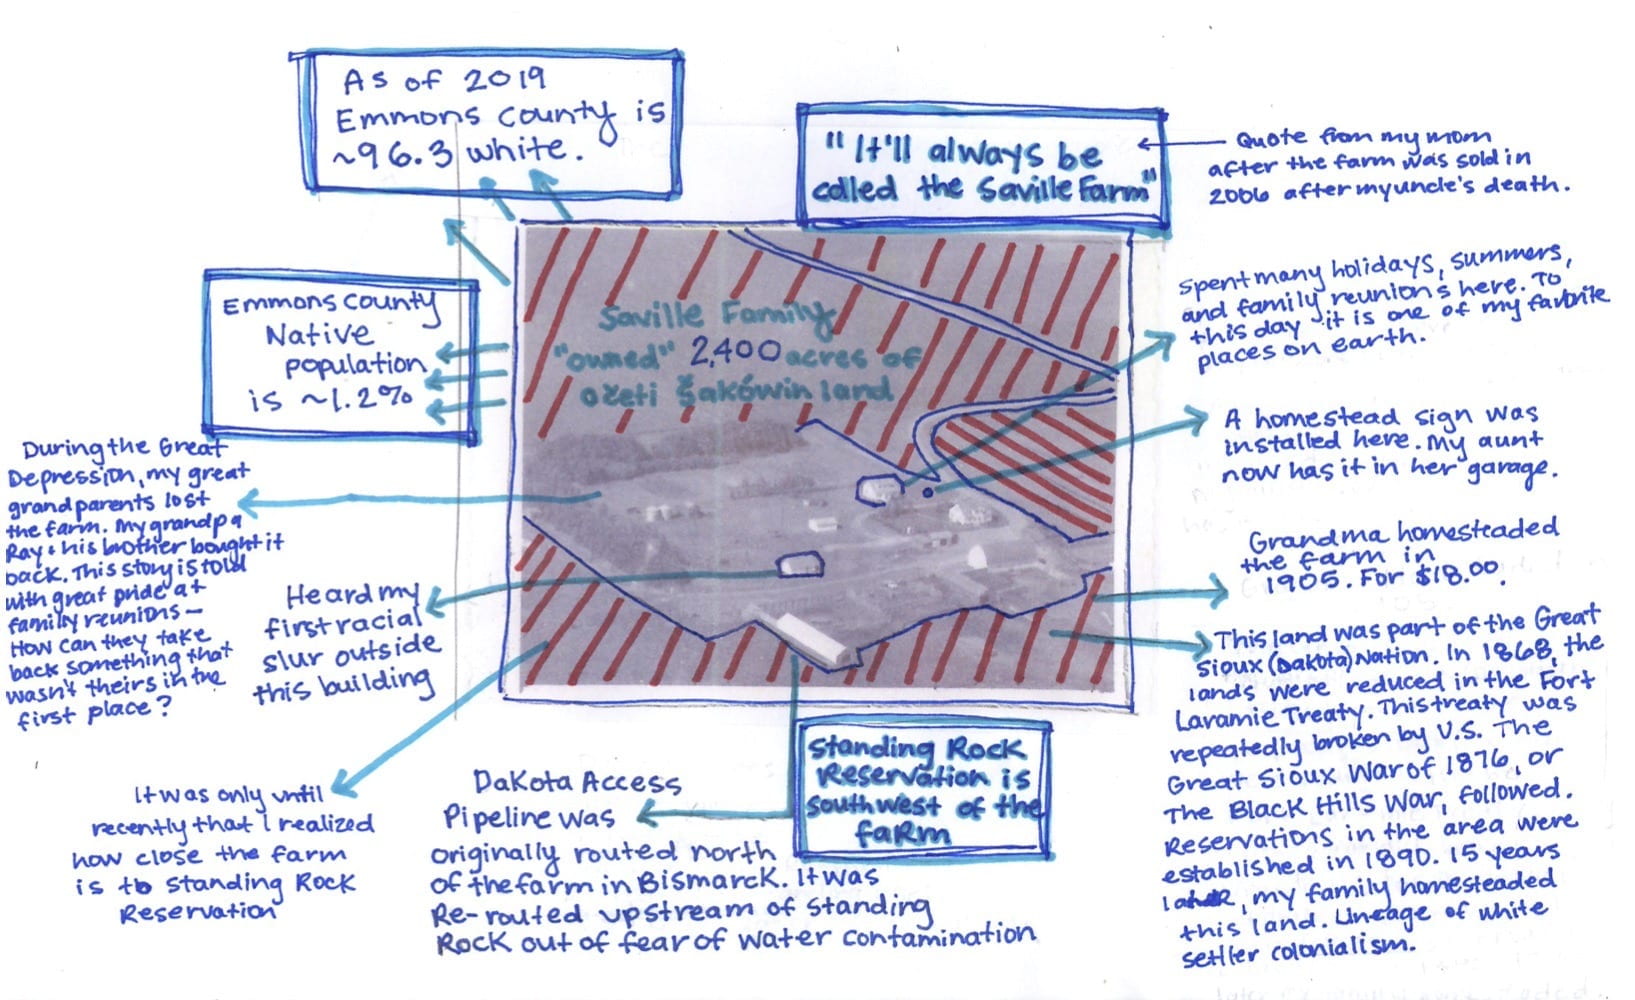 As of 2019
Emmons county is
~96.3 white.
"It'll always be
called the Saville Farm"
Quote from my mom
after the farm was sold in
2006 after my uncle's death.
Emmons county
Native
population
is ~1.2%
Saville Family
"owned" 2,400 acres of
očeti Šakówin land
Spent many holidays, summers,
and family reunions here. To
this day it is one of my favorite
places on earth.
A homestead sign was
installed here. My aunt
now has it in her garage.
During the Great
Depression, my great
grandparents lost
the farm. My grandpa
Ray + his brother bought it
back. This story is told
with great pride at
family reunions –
How can they take
back something that
wasn't theirs in the
first place?
Heard my
first racial
slur outside
this building
Grandma homesteaded
the farm in
1905. For $18.00.
This land was part of the Great
Sioux (Dakota) Nation. In 1868, the
lands were reduced in the Fort
Laramie Treaty. This treaty was
repeatedly broken by U.S. The
Great Sioux War of 1876, or
The Black Hills War, followed.
Reservations in the area were
established in 1890. 15 years
later, my family homesteaded
this land. Lineage of white
settler colonialism.
It was only until
recently that I realized
how close the farm
is to Standing Rock
Reservation
Dakota Access
Pipeline was
originally routed north
of the farm in Bismarck. It was
Re-routed upstream of Standing
Rock out of fear of water contamination
Standing Rock
Reservation is
southwest of the
farm